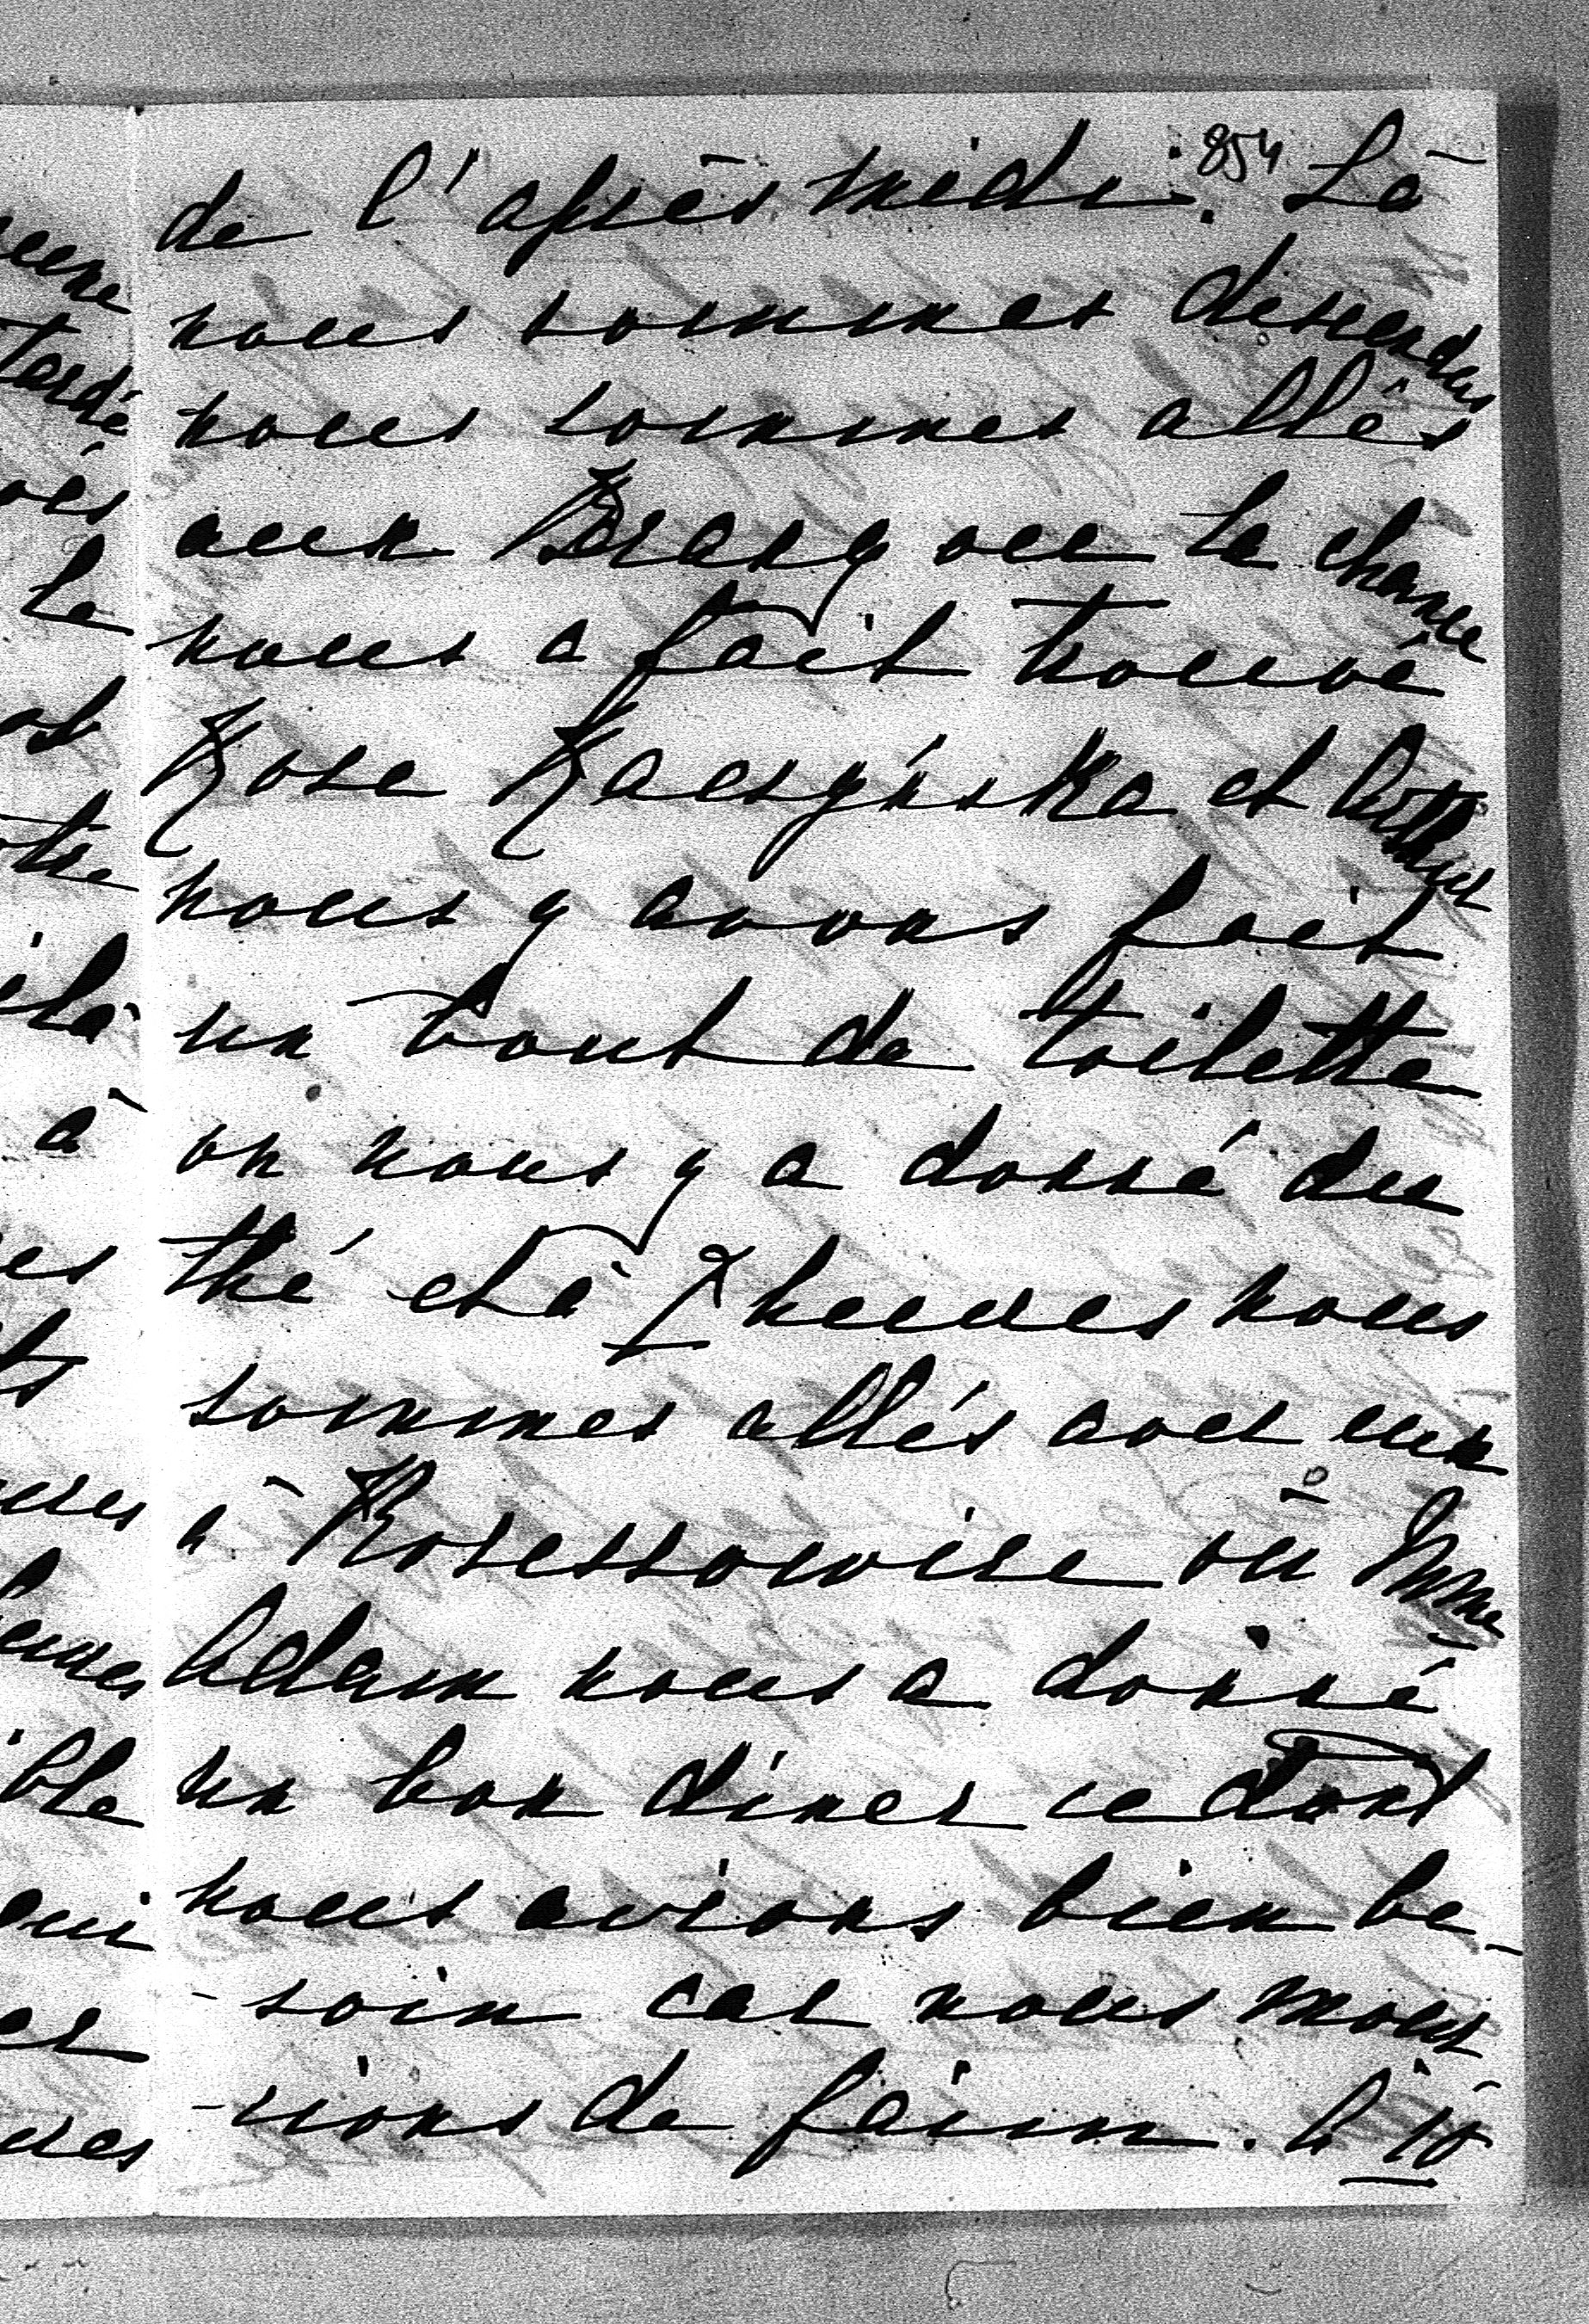 854
de l'après midi. Là
nous sommes descendus
nous sommes allés
aux Brasy ou la chance
nous a fait trouvé
Rose Raczyńska et Arthur
nous y avons fait
un bout de toilette
on nous y a donné du
thé et à 7 heures nous
sommes allés avec eux
à où Mme
Adam nous a donné
un bon diner ce dont
nous avions bien be-
-soin car nous mour
-rions de faim. A 10